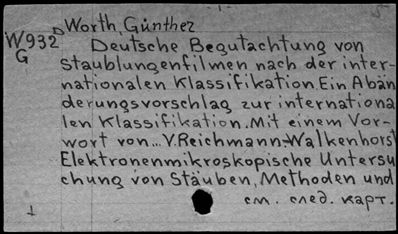 Worth, Günther
W932
G
Deutsche Begutachtung von
staublungenfilmen nach der inter-
nationalen Klassifikation. Ein Abän
derungsvorschlag zur internationa
len Klassifikation. Mit einem Vor-
wort von... V. Reichmann-Walkenhorst
Elektronenmikroskopische Untersu
chung von Stäuben, Methoden und
см. след. карт.
1